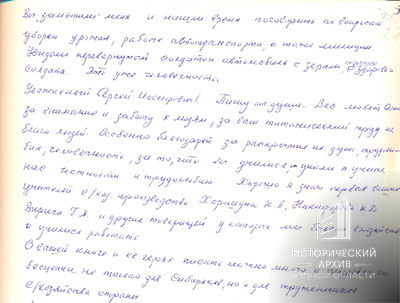 Вы заметили меня и нашли время поговорить по вопросам
уборки урожая, работе автотранспорта, а также милиции
Увидели перевернутый солдатом автомобиль с зерном, о здоровьи
солдата. Это уже человечность.
Уважаемый Сергей Иосифович! Пишу от души. Вас любят
за внимание и заботу к людям, за ваш титанический труд на
благо людей. Особенно благодарны за раскрытия их души, трудолю-
бия, человечность, за то, что Вы учились, учили и учите
нас честности и трудолюбию. Хорошо я знаю первых ваших
учителей с/хоз. производства
Вирича Г.А. и других товарищей у которых мы были
и учились работать
О вашей книге и ее героях писать можно много
бесценна не только для Сибиряков, но и для тружеников
с/хозяйства страны
ИСТОРИЧЕСКИЙ
АРХИВ
ОМСКОЙ ОБЛАСТИ